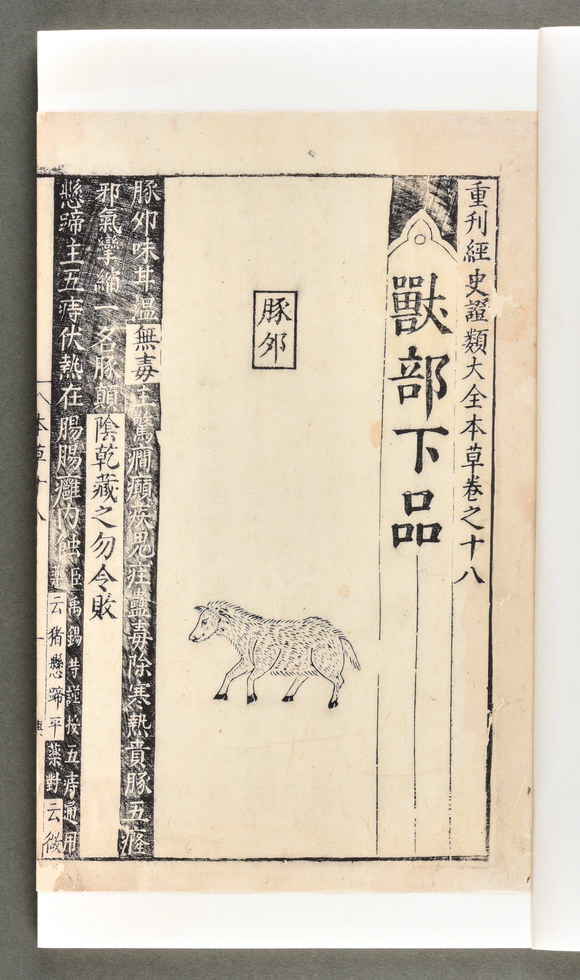 重刊經史證類大全本草卷之十八
獸部下品
豚夘
豚夘味甘溫無毒主驚癇癲疾鬼疰蠱毒除寒熱賁豚五癃
邪氣攣縮一名豚顛陰乾藏之勿令敗
懸蹄主五痔伏熱在腸腸癰內蝕
臣禹錫等謹按五痔通用
藥云猪懸蹄平藥對云微